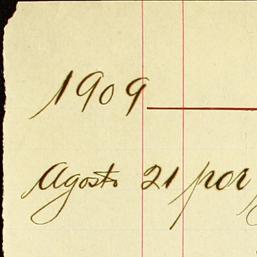 1909
Agosto 21 por